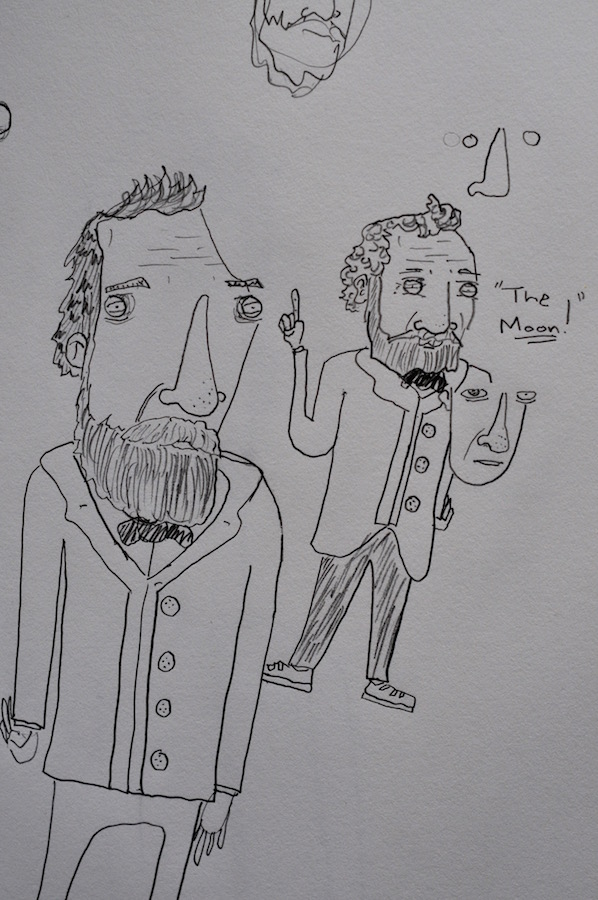 "The
Moon!"